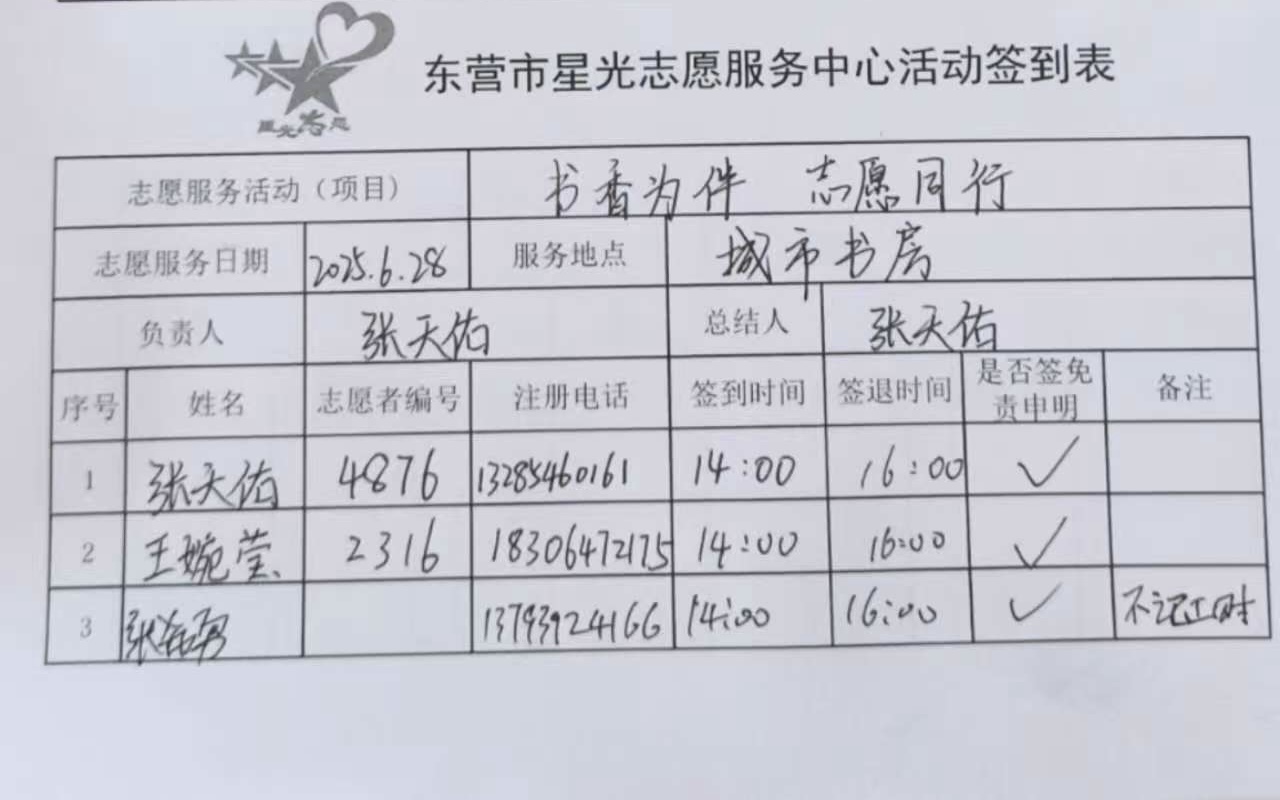 星光志愿
东营市星光志愿服务中心活动签到表
志愿服务活动（项目） 书香为伴 志愿同行
志愿服务日期 2025.6.28 服务地点 城市书房
负责人 张天佑 总结人 张天佑
序号 姓名 志愿者编号 注册电话 签到时间 签退时间 是否签免责申明 备注
1 张天佑 4876 13285460161 14:00 16:00 ✓
2 王婉莹 2316 18306472175 14:00 16:00 ✓
3 张 13793924166 14:00 16:00 ✓ 不记工时